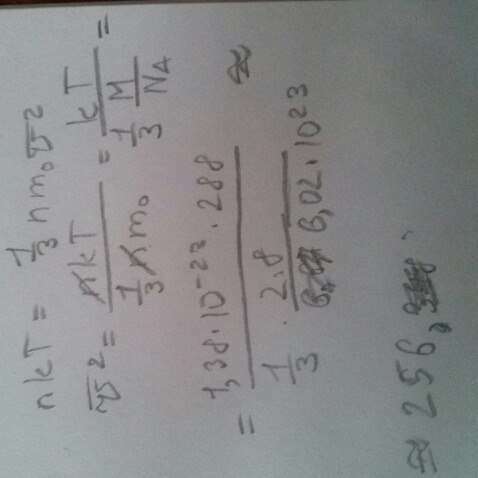 nkT = 1/3 nm₀v̅²
v̅² = nkT / (1/3 nm₀) = kT / (1/3 M/N_A) =
= 1,38·10⁻²³·288 / (1/3 · 2.8 / 6,02·10²³) ≈
≈ 256,